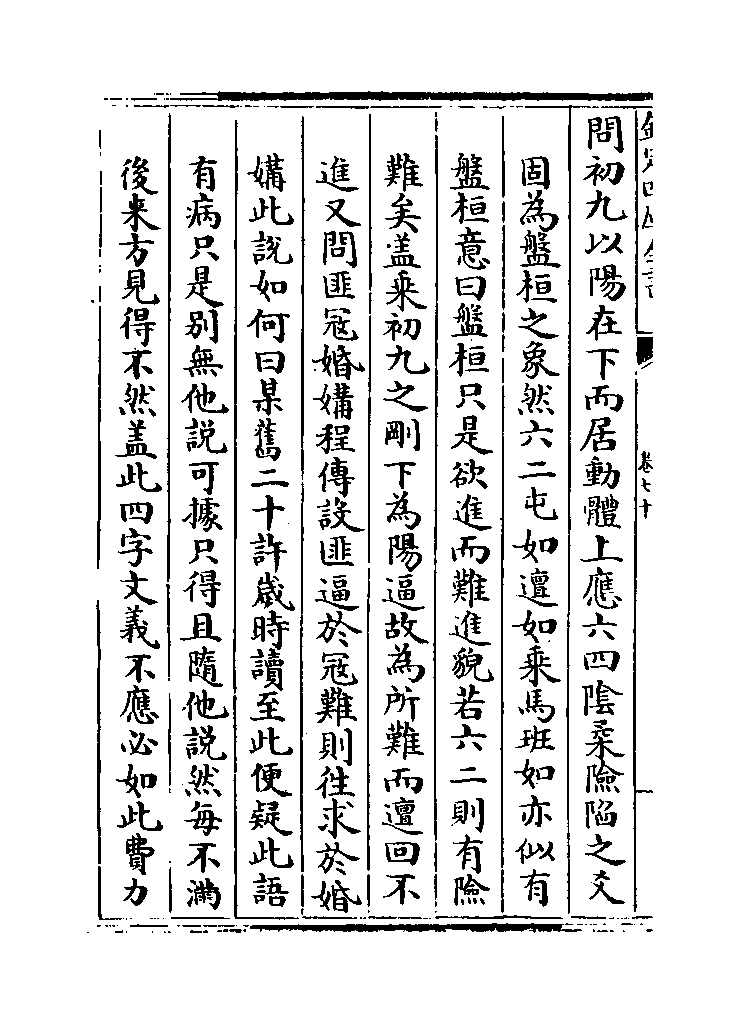 欽定四庫全書
卷七十
問初九以陽在下而居動體上應六四陰柔險陷之爻
固為盤桓之象然六二屯如邅如乘馬班如亦似有
盤桓意曰盤桓只是欲進而難進貌若六二則有險
難矣盖乘初九之剛下為陽逼故為所難而邅回不
進又問匪冦婚媾程傳設匪逼於冦難則往求於婚
媾此說如何曰某舊二十許歲時讀至此便疑此語
有病只是別無他說可據只得且隨他說然每不滿
後来方見得不然盖此四字文義不應必如此費力